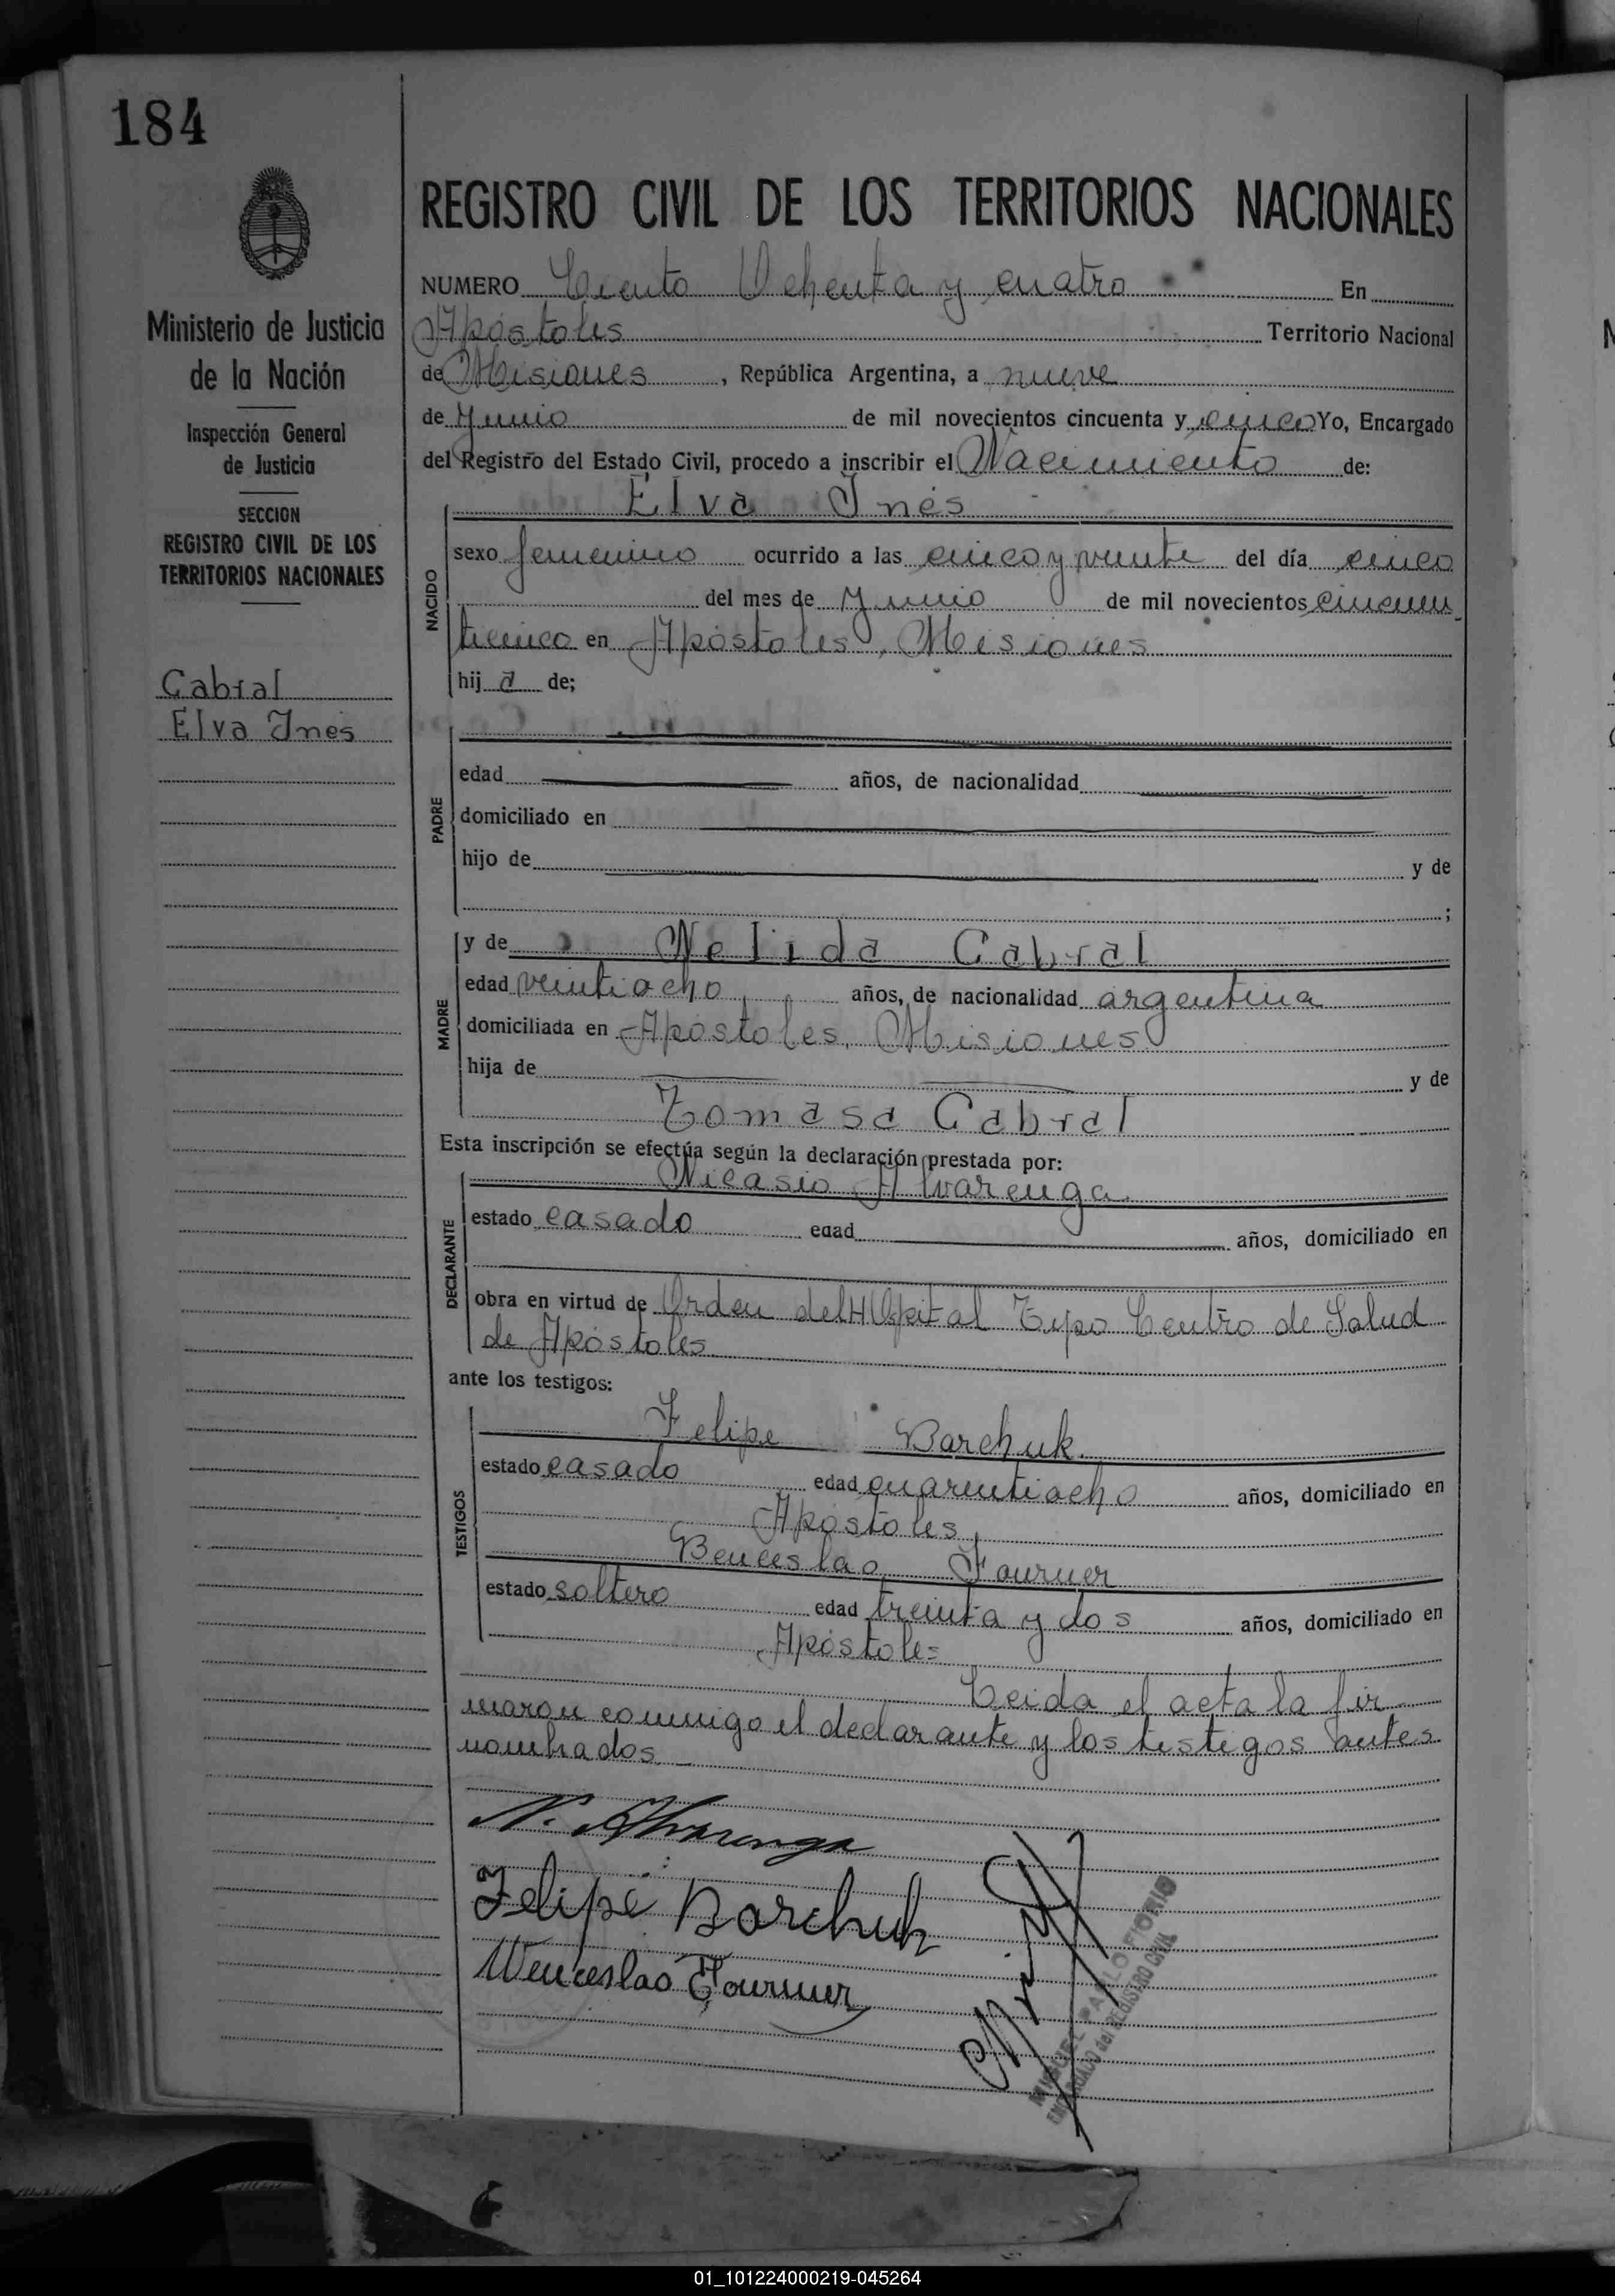 184
Ministerio de Justicia
de la Nación
Inspección General
de Justicia
SECCION
REGISTRO CIVIL DE LOS
TERRITORIOS NACIONALES
Cabral
Elva Ines
REGISTRO CIVIL DE LOS TERRITORIOS NACIONALES
NUMERO Ciento Ochenta y cuatro En
Apóstoles Territorio Nacional
de Misiones, República Argentina, a nueve
de Junio de mil novecientos cincuenta y cinco Yo, Encargado
del Registro del Estado Civil, procedo a inscribir el Nacimiento de:
Elva Inés
NACIDO
sexo femenino ocurrido a las cinco y veinte del día cinco
del mes de Junio de mil novecientos cincuen
ticinco en Apóstoles, Misiones
hij a de;
PADRE
edad años, de nacionalidad
domiciliado en
hijo de y de
;
MADRE
y de Nelida Cabral
edad veintiocho años, de nacionalidad argentina
domiciliada en Apóstoles, Misiones
hija de y de
Tomasa Cabral
Esta inscripción se efectúa según la declaración prestada por:
DECLARANTE
Nicasio Alvarenga
estado casado edad años, domiciliado en
obra en virtud de Orden del Hospital Tipo Centro de Salud
de Apóstoles
ante los testigos:
TESTIGOS
Felipe Barchuk
estado casado edad cuarentiocho años, domiciliado en
Apóstoles,
Benceslao Fourner
estado soltero edad treinta y dos años, domiciliado en
Apóstoles
Leida el acta la fir
maron conmigo el declarante y los testigos antes
nombrados.
N. Alvarenga
Felipe Barchuk
Wenceslao Fourner
MIGUEL PABLO FIORIO
ENCARGADO del REGISTRO CIVIL
01_101224000219-045264